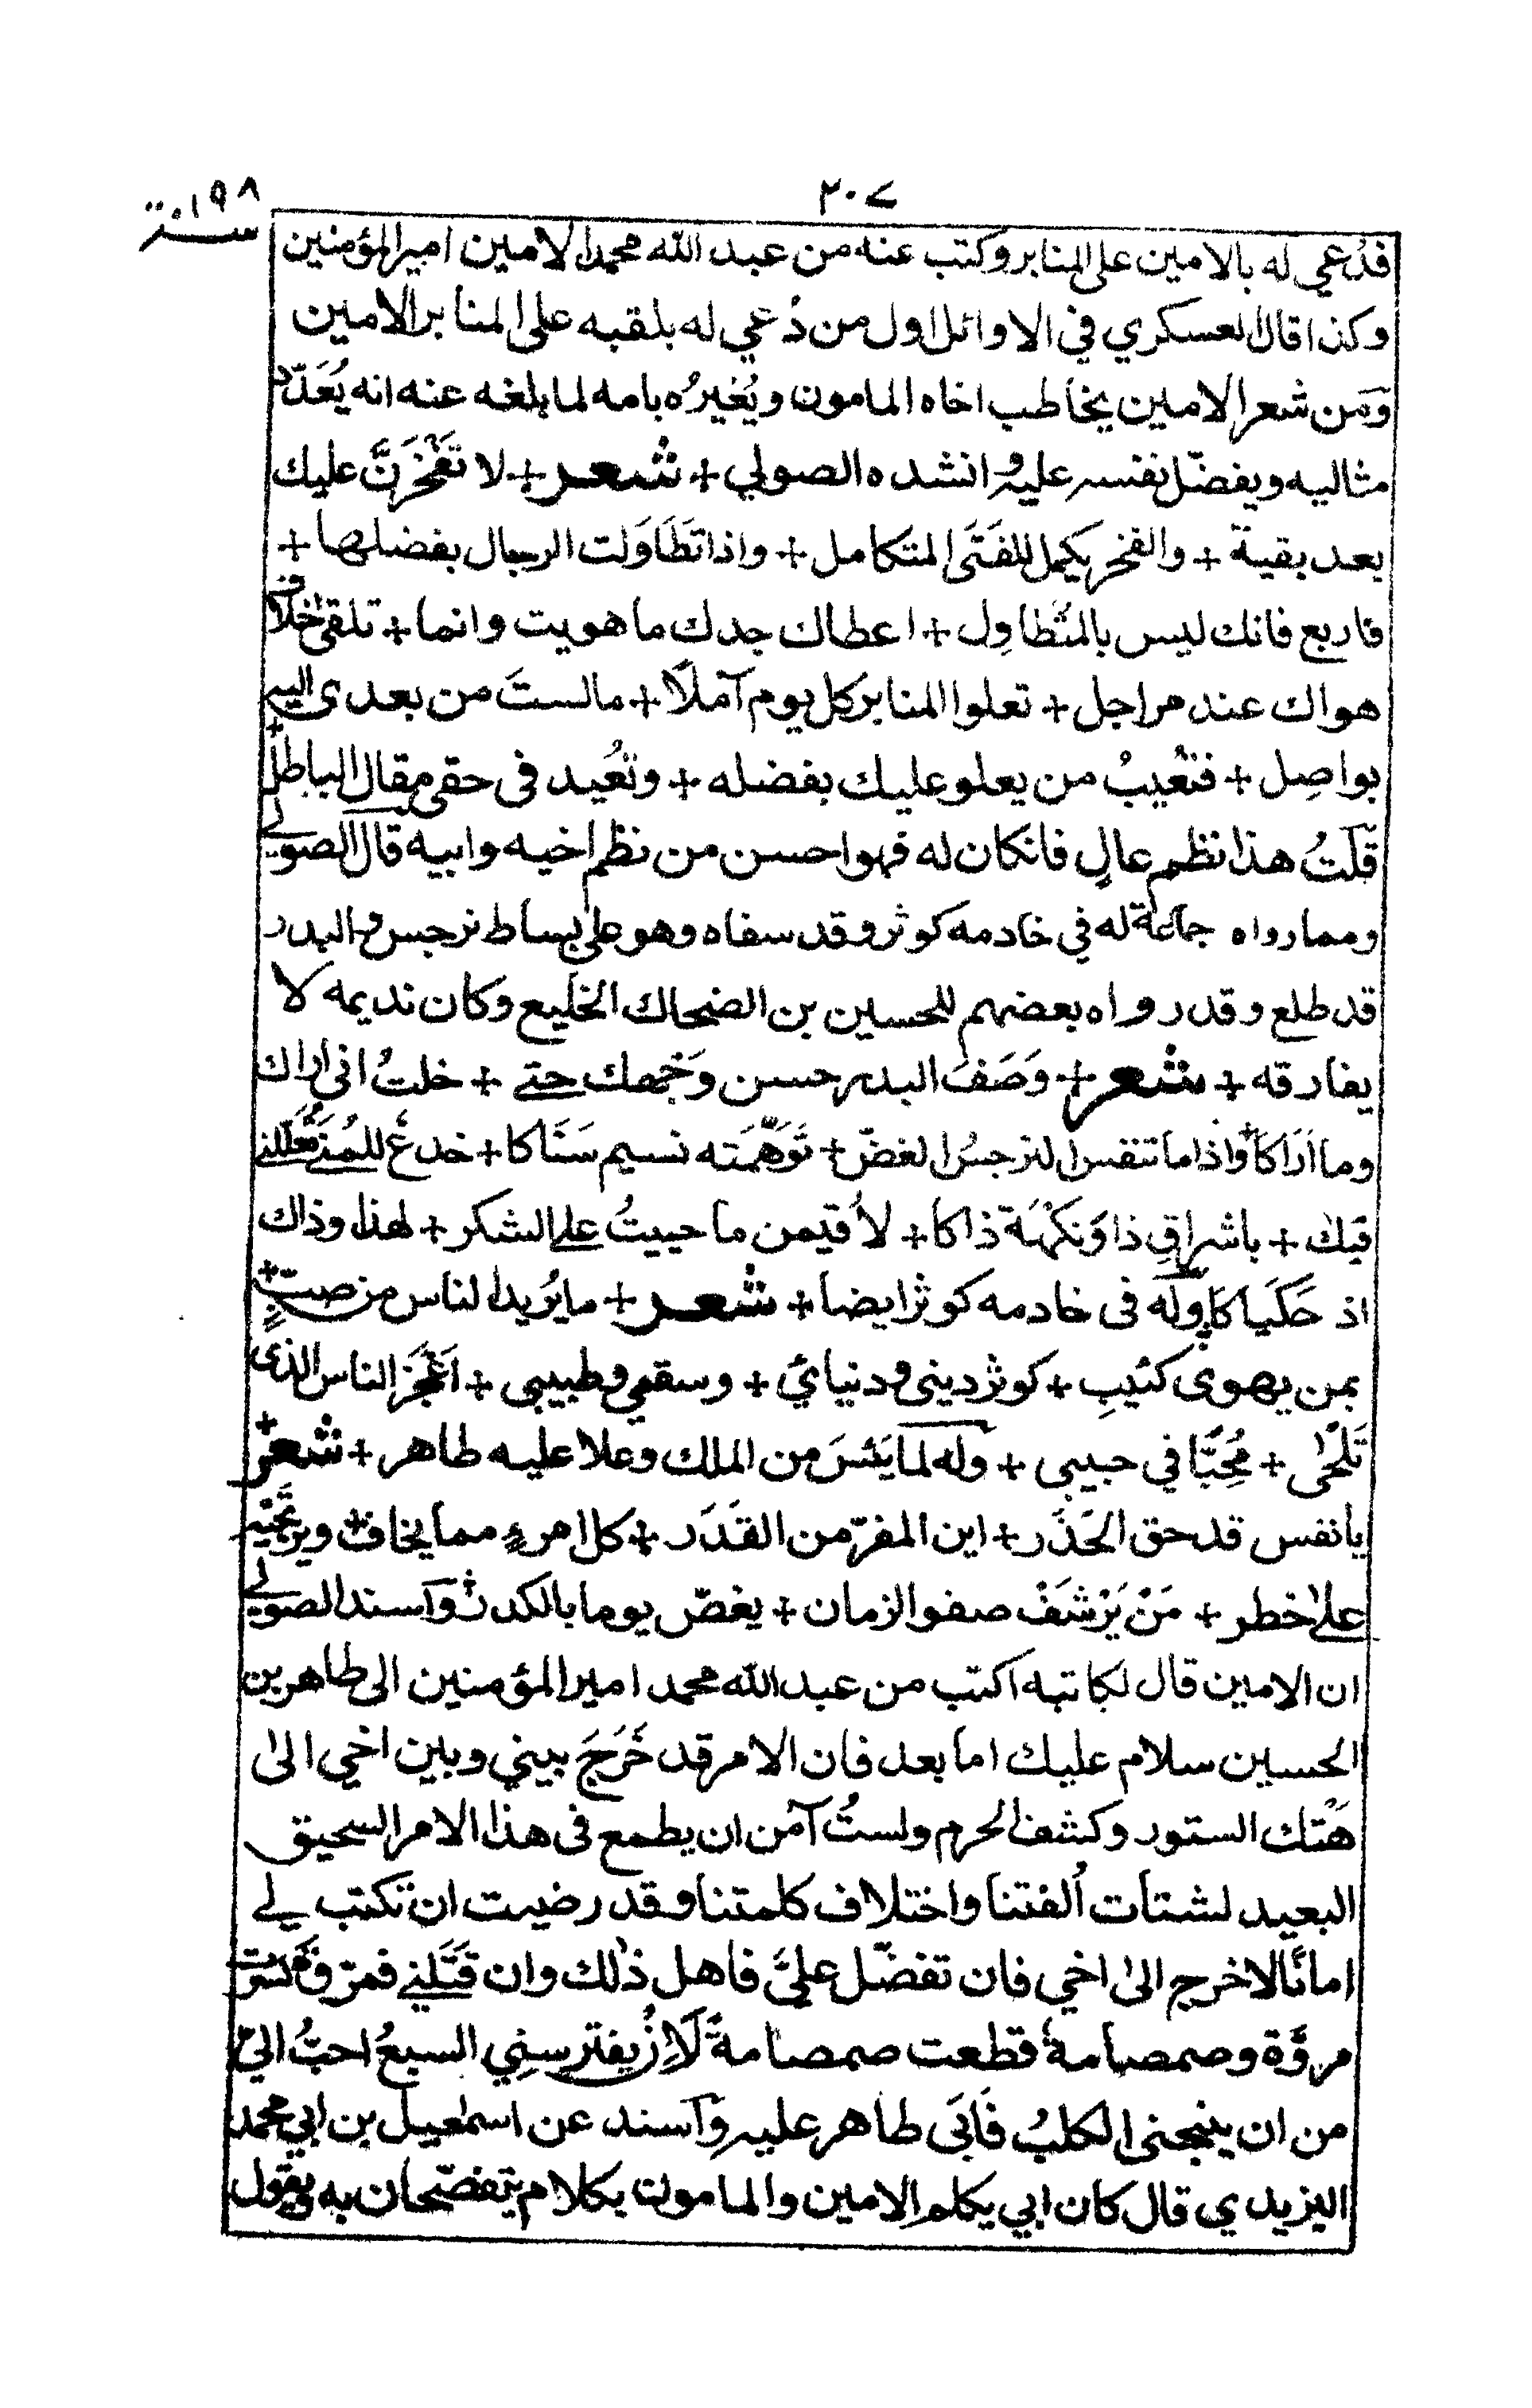 ٢٠٧
سنة ١٩٨
فدُعي له بالامين على المنابر وكتب عنه من عبد الله محمد الامين امير المؤمنين
وكذا قال العسكري في الاوائل اول من دُعي له بلقبه على المنابر الامين
وَمن شعر الامين يخاطب اخاه المامون ويُغيرُه بامه لما بلغه عنه انه يُعَدّد
مثاليه ويفضّل نفسه عليه وانشده الصولي + شعر + لا تَفْخَرَنَّ عليك
بعد بقية + والفخر يكمل للفَتَى المتكامل + واذا تَطَاوَلت الرجال بفضلها +
فاربع فانك ليس بالمتَطاوِل + اعطاك جدك ما هويت وانما + تلقى خلاف
هواك عند مراجل + تعلوا المنابر كل يوم آملًا + مالستَ من بعدي اليه
بواصِل + فتَعْيبُ من يعلو عليك بفضله + وتُعيد في حقي مقال الباطل +
قلتُ هذا نظم عالٍ فانكان له فهو احسن من نظم اخيه وابيه قال الصولي
ومما رواه جماعة له في خادمه كوثر وقد سقاه وهو على بساط نرجس والبدر
قد طلع وقد رواه بعضهم للحسين بن الضحاك الخليع وكان نديمه لا
يفارقه + شعر + وَصَفَ البدر حسن وَجْهك حتى + خلتُ اني اراك
وما اَرَاكَا + واذا ما تنفس النرجسُ الغضّ + تَوَهَّمَته نسيم سَنَاكا + خدعٌ للمُنَى تُعَلّلني
فيك + باشراقِ ذا وَنَكْهَة ذاكا + لاُقيمن ما حييتُ على الشكر + لهذا وذاك
اذ حَكَيا كا + وله في خادمه كوثر ايضا + شعر + ما يُريد الناس من صبٍّ +
بمن يهوى كئيبِ + كوثر ديني ودنيائي + وسقمي وطبيبي + اَعْجَز الناس الذي
تَلْحٰى + مُحِبًّا في حبيبي + وله لما يَئسَ من الملك وعلا عليه طاهر + شعر +
يا نفس قد حق الحَذَر + اين المفرّ من القَدَر + كل امرءٍ مما يخاف + ويرتَجيه
على خطر + مَنْ يَرْشَفْ صفو الزمان + يغصّ يوما بالكدر + وَاسند الصولي
ان الامين قال لكاتبه اكتب من عبد الله محمد امير المؤمنين الى طاهر بن
الحسين سلام عليك اما بعد فان الامر قد خَرَجَ بيني وبين اخي الى
هَتك الستور وكشف الحرم ولستُ آمن ان يطمع في هذا الامر السحيق
البعيد لشتات اُلفتنا واختلاف كلمتنا وقد رضيت ان تكتب لي
امانًا لاخرج الى اخي فان تفضّل عليَّ فاهل ذلك وان قَتَلني فمرّوة كسرت
مروَّة وصمصامة قطعت صمصامةً لَاِنْ يفترسني السبعُ احبُّ اليّ
من ان ينبحني الكلبُ فاَبَى طاهر عليه وَاسند عن اسمعيل بن ابي محمد
اليزيدي قال كان ابي يكلم الامين والمامون بكلام يتفصّحان به ويقول